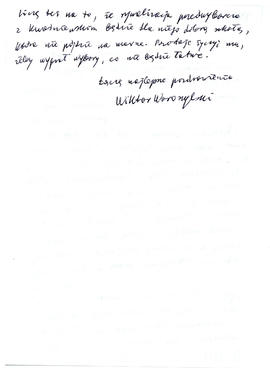 Liczę też na to, że rywalizacja przedwyborcza
z Kwaśniewskim będzie dla niego dobrą szkołą,
która nie pójdzie na marne. Pozostaje życzyć mu,
żeby wygrał wybory, co nie będzie łatwe.
Łączę najlepsze pozdrowienia
Wiktor Woroszylski